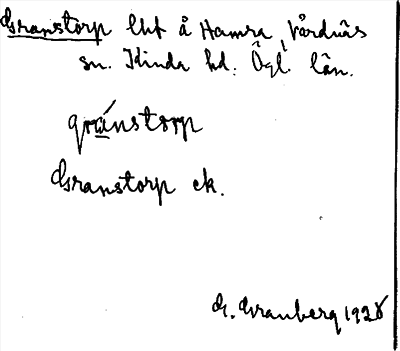 Granstorp lht å Hamra, Vårdnäs
sn. Kinda hd. Ögl. län.
gránstorp
Granstorp ek.
G. Granberg 1928